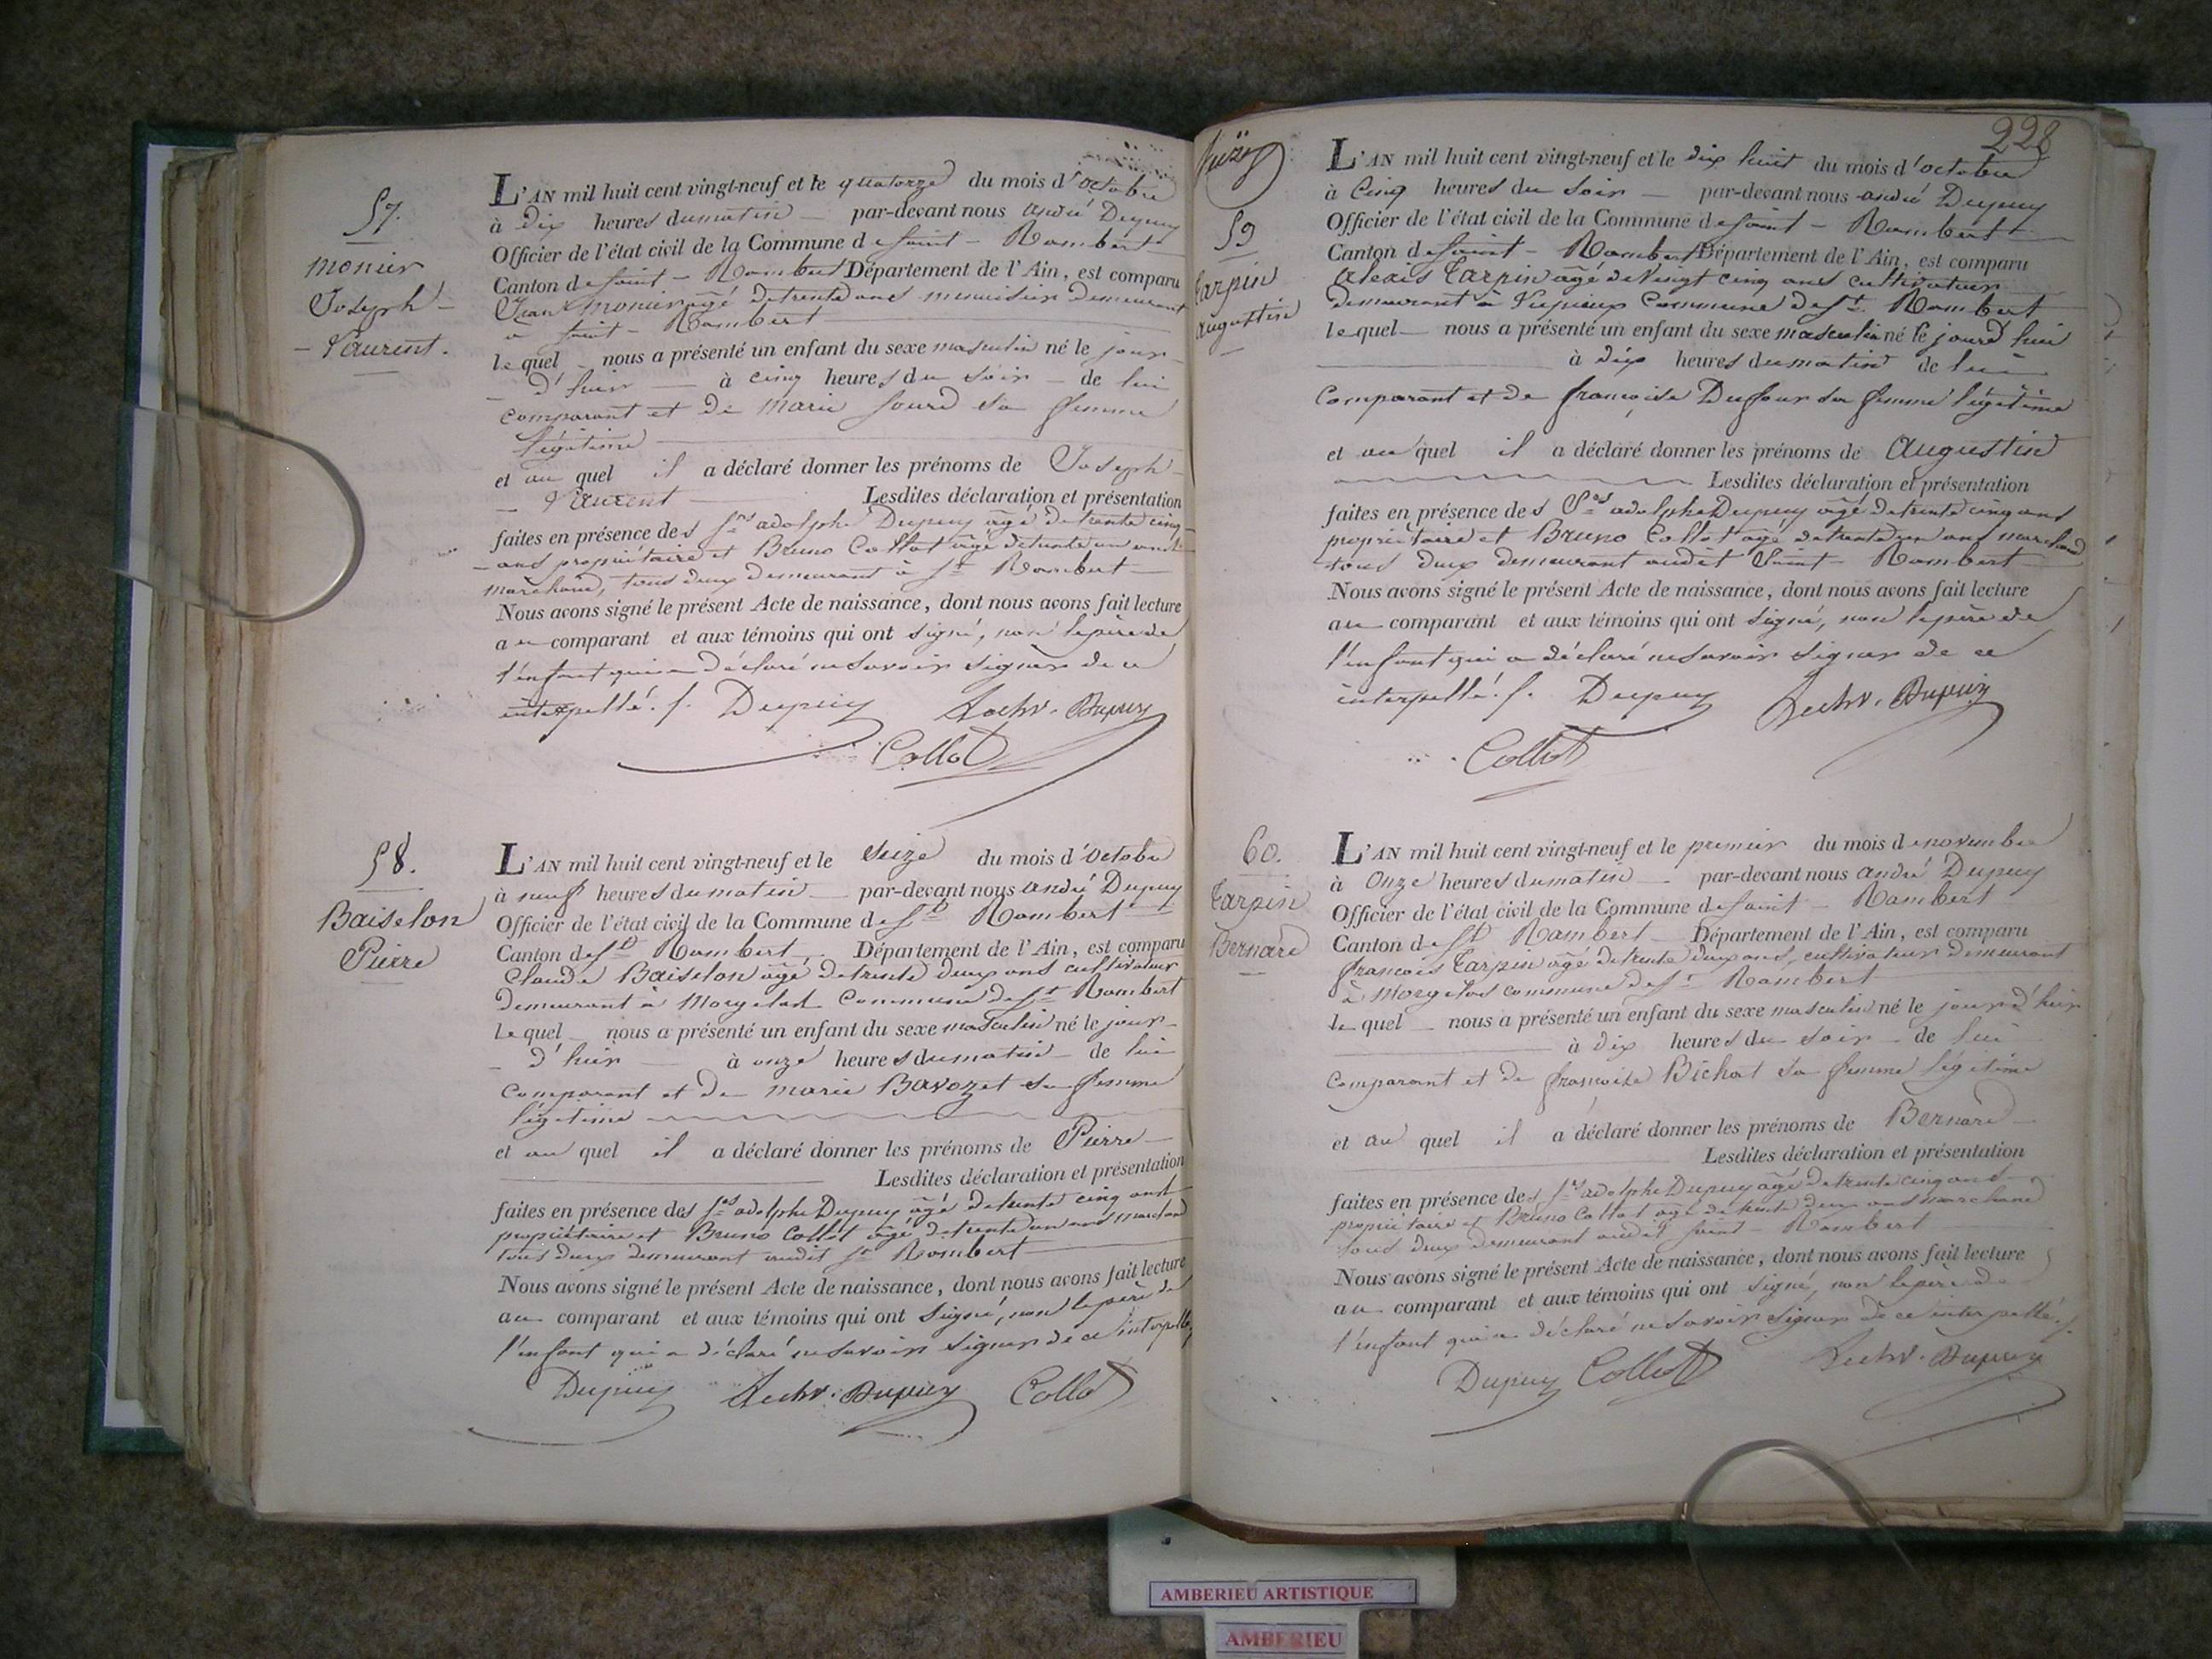 57.
Monier
Joseph-
-Laurent.
L'AN mil huit cent vingt-neuf et le quatorze du mois d'octobre
à dix heures du matin par-devant nous André Dupuy
Officier de l'état civil de la Commune de Saint-Rambert
Canton de Saint-Rambert Département de l'Ain, est comparu
Jean Monier âgé de trente ans menuisier demeurant
à Saint-Rambert
lequel nous a présenté un enfant du sexe masculin né le jour-
-d'huir à cinq heures du soir de lui
comparant et de Marie sa femme
légitime
et au quel il a déclaré donner les prénoms de Joseph-
-Laurent Lesdites déclaration et présentation
faites en présence des Srs adolphe Dupuy âgé de trente cinq
-ans propriétaire et Bruno Collot âgé de trente un ans
marchand, tous deux demeurant à St Rambert
Nous avons signé le présent Acte de naissance, dont nous avons fait lecture
au comparant et aux témoins qui ont signé, non le père de
l'enfant qui a déclaré ne savoir signer de ce
interpellé. Dupuy Dupuy
Collot
58.
Baiselon
Pierre
L'AN mil huit cent vingt-neuf et le seize du mois d'octobre
à neuf heures du matin par-devant nous André Dupuy
Officier de l'état civil de la Commune de St Rambert
Canton de St Rambert Département de l'Ain, est comparu
Claude Baiselon âgé de trente deux ans cultivateur
demeurant à Morgelas Commune de St Rambert
lequel nous a présenté un enfant du sexe masculin né le jour-
-d'huir à onze heures du matin de lui
comparant et de marie Bavozet sa femme
légitime
et au quel il a déclaré donner les prénoms de Pierre
Lesdites déclaration et présentation
faites en présence des Srs adolphe Dupuy âgé de trente cinq ans
propriétaire et Bruno Collot âgé de trente un ans marchand
tous deux demeurant audit St Rambert
Nous avons signé le présent Acte de naissance, dont nous avons fait lecture
au comparant et aux témoins qui ont signé, non le père de
l'enfant qui a déclaré ne savoir signer de ce interpellé
Dupuy Dupuy Collot
228
59
Tarpin
augustin
L'AN mil huit cent vingt-neuf et le dix huit du mois d'octobre
à Cinq heures du soir par-devant nous André Dupuy
Officier de l'état civil de la Commune de Saint-Rambert
Canton de Saint-Rambert Département de l'Ain, est comparu
alexis Tarpin âgé de vingt cinq ans cultivateur
demeurant à Commune de St Rambert
lequel nous a présenté un enfant du sexe masculin né le jourd'hui
à dix heures du matin de lui
comparant et de françoise Dufour sa femme légitime
et au quel il a déclaré donner les prénoms de Augustin
Lesdites déclaration et présentation
faites en présence des Srs adolphe Dupuy âgé de trente cinq ans
propriétaire et Bruno Collot âgé de trente un ans marchand
tous deux demeurant audit Saint-Rambert
Nous avons signé le présent Acte de naissance, dont nous avons fait lecture
au comparant et aux témoins qui ont signé, non le père de
l'enfant qui a déclaré ne savoir signer de ce
interpellé. Dupuy Dupuy
Collot
60.
Tarpin
Bernard
L'AN mil huit cent vingt-neuf et le premier du mois de novembre
à Onze heures du matin par-devant nous André Dupuy
Officier de l'état civil de la Commune de Saint-Rambert
Canton de St Rambert Département de l'Ain, est comparu
françois Tarpin âgé de trente deux ans, cultivateur demeurant
à Morgelas commune de St Rambert
lequel nous a présenté un enfant du sexe masculin né le jour d'hier
à dix heures du soir de lui
comparant et de françoise Bichat sa femme légitime
et au quel il a déclaré donner les prénoms de Bernard
Lesdites déclaration et présentation
faites en présence des Srs adolphe Dupuy âgé de trente cinq ans
propriétaire et Bruno Collot âgé de trente deux ans marchand
tous deux demeurant audit Saint-Rambert
Nous avons signé le présent Acte de naissance, dont nous avons fait lecture
au comparant et aux témoins qui ont signé, non le père de
l'enfant qui a déclaré ne savoir signer de ce interpellé.
Dupuy Collot Dupuy
AMBERIEU ARTISTIQUE
AMBERIEU